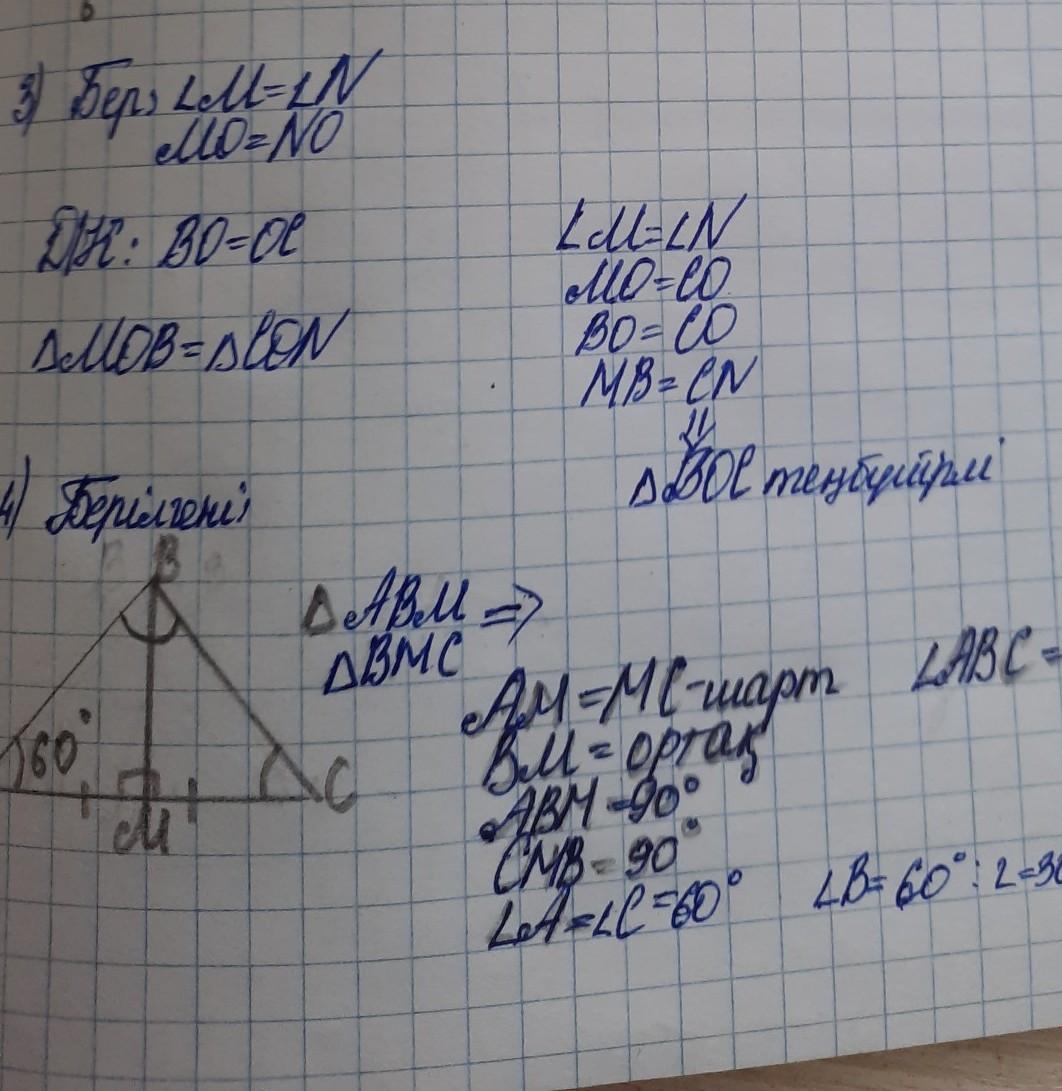 3) Бер; ∠M=∠N
MO=NO
ДК: BO=OC
∆MOB=∆CON
∠M=∠N
MO=CO
BO=CO
MB=CN
⇓
∆BOC теңбүйірлі
4) Берілгені;
B
60°
M
C
∆ABM ⇒
∆BMC
AM=MC-шарт
BM=ортақ
ABM=90°
CMB=90°
∠A=∠C=60°
∠ABC=
∠B=60°:2=30